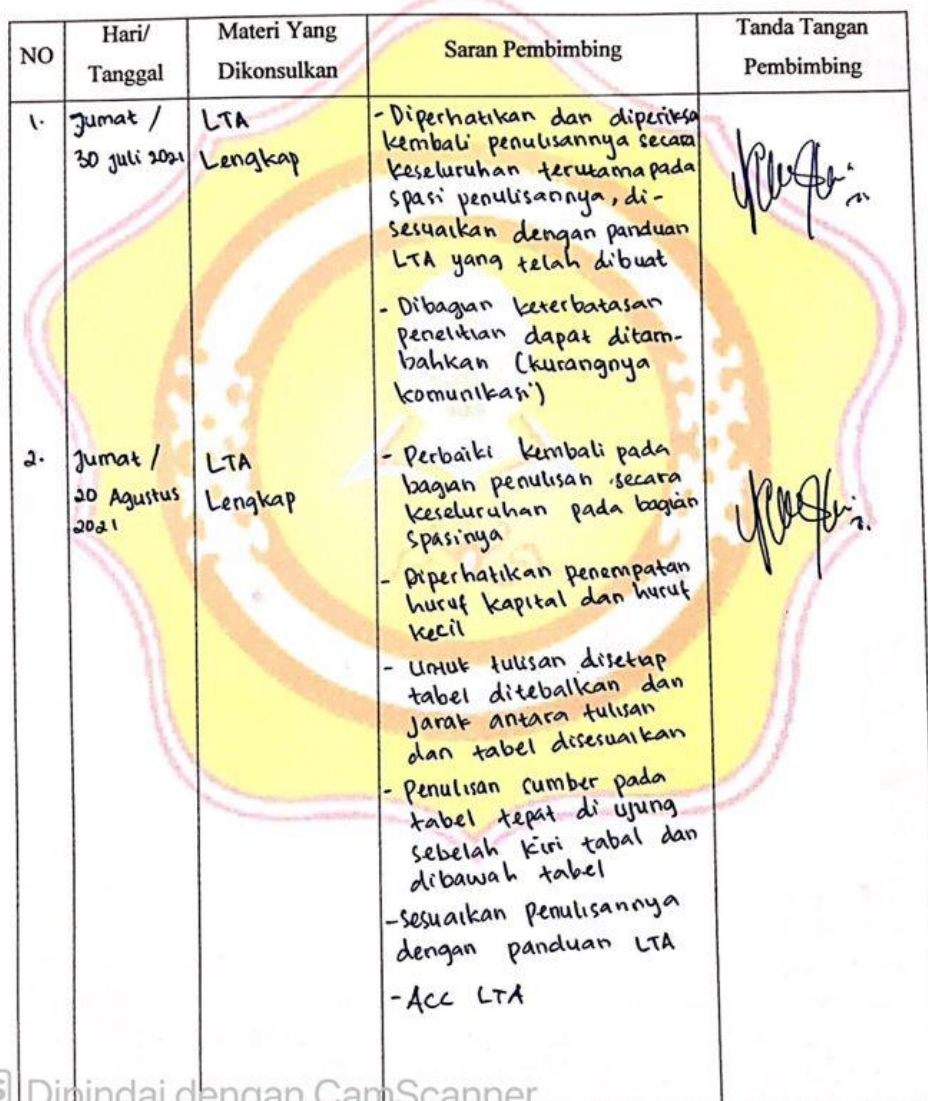 NO
Hari/
Tanggal
Materi Yang
Dikonsulkan
Saran Pembimbing
Tanda Tangan
Pembimbing
1.
Jumat /
30 Juli 2021
LTA
Lengkap
- Diperhatikan dan diperiksa
kembali penulisannya secara
keseluruhan terutama pada
spasi penulisannya, di-
sesuaikan dengan panduan
LTA yang telah dibuat
- Dibagian keterbatasan
penelitian dapat ditam-
bahkan (kurangnya
komunikasi)
2.
Jumat /
20 Agustus
2021
LTA
Lengkap
- Perbaiki kembali pada
bagian penulisan secara
keseluruhan pada bagian
spasinya
- Diperhatikan penempatan
huruf kapital dan huruf
kecil
- Untuk tulisan disetiap
tabel ditebalkan dan
jarak antara tulisan
dan tabel disesuaikan
- Penulisan sumber pada
tabel tepat di ujung
sebelah kiri tabal dan
dibawah tabel
- Sesuaikan penulisannya
dengan panduan LTA
- ACC LTA
Dipindai dengan CamScanner